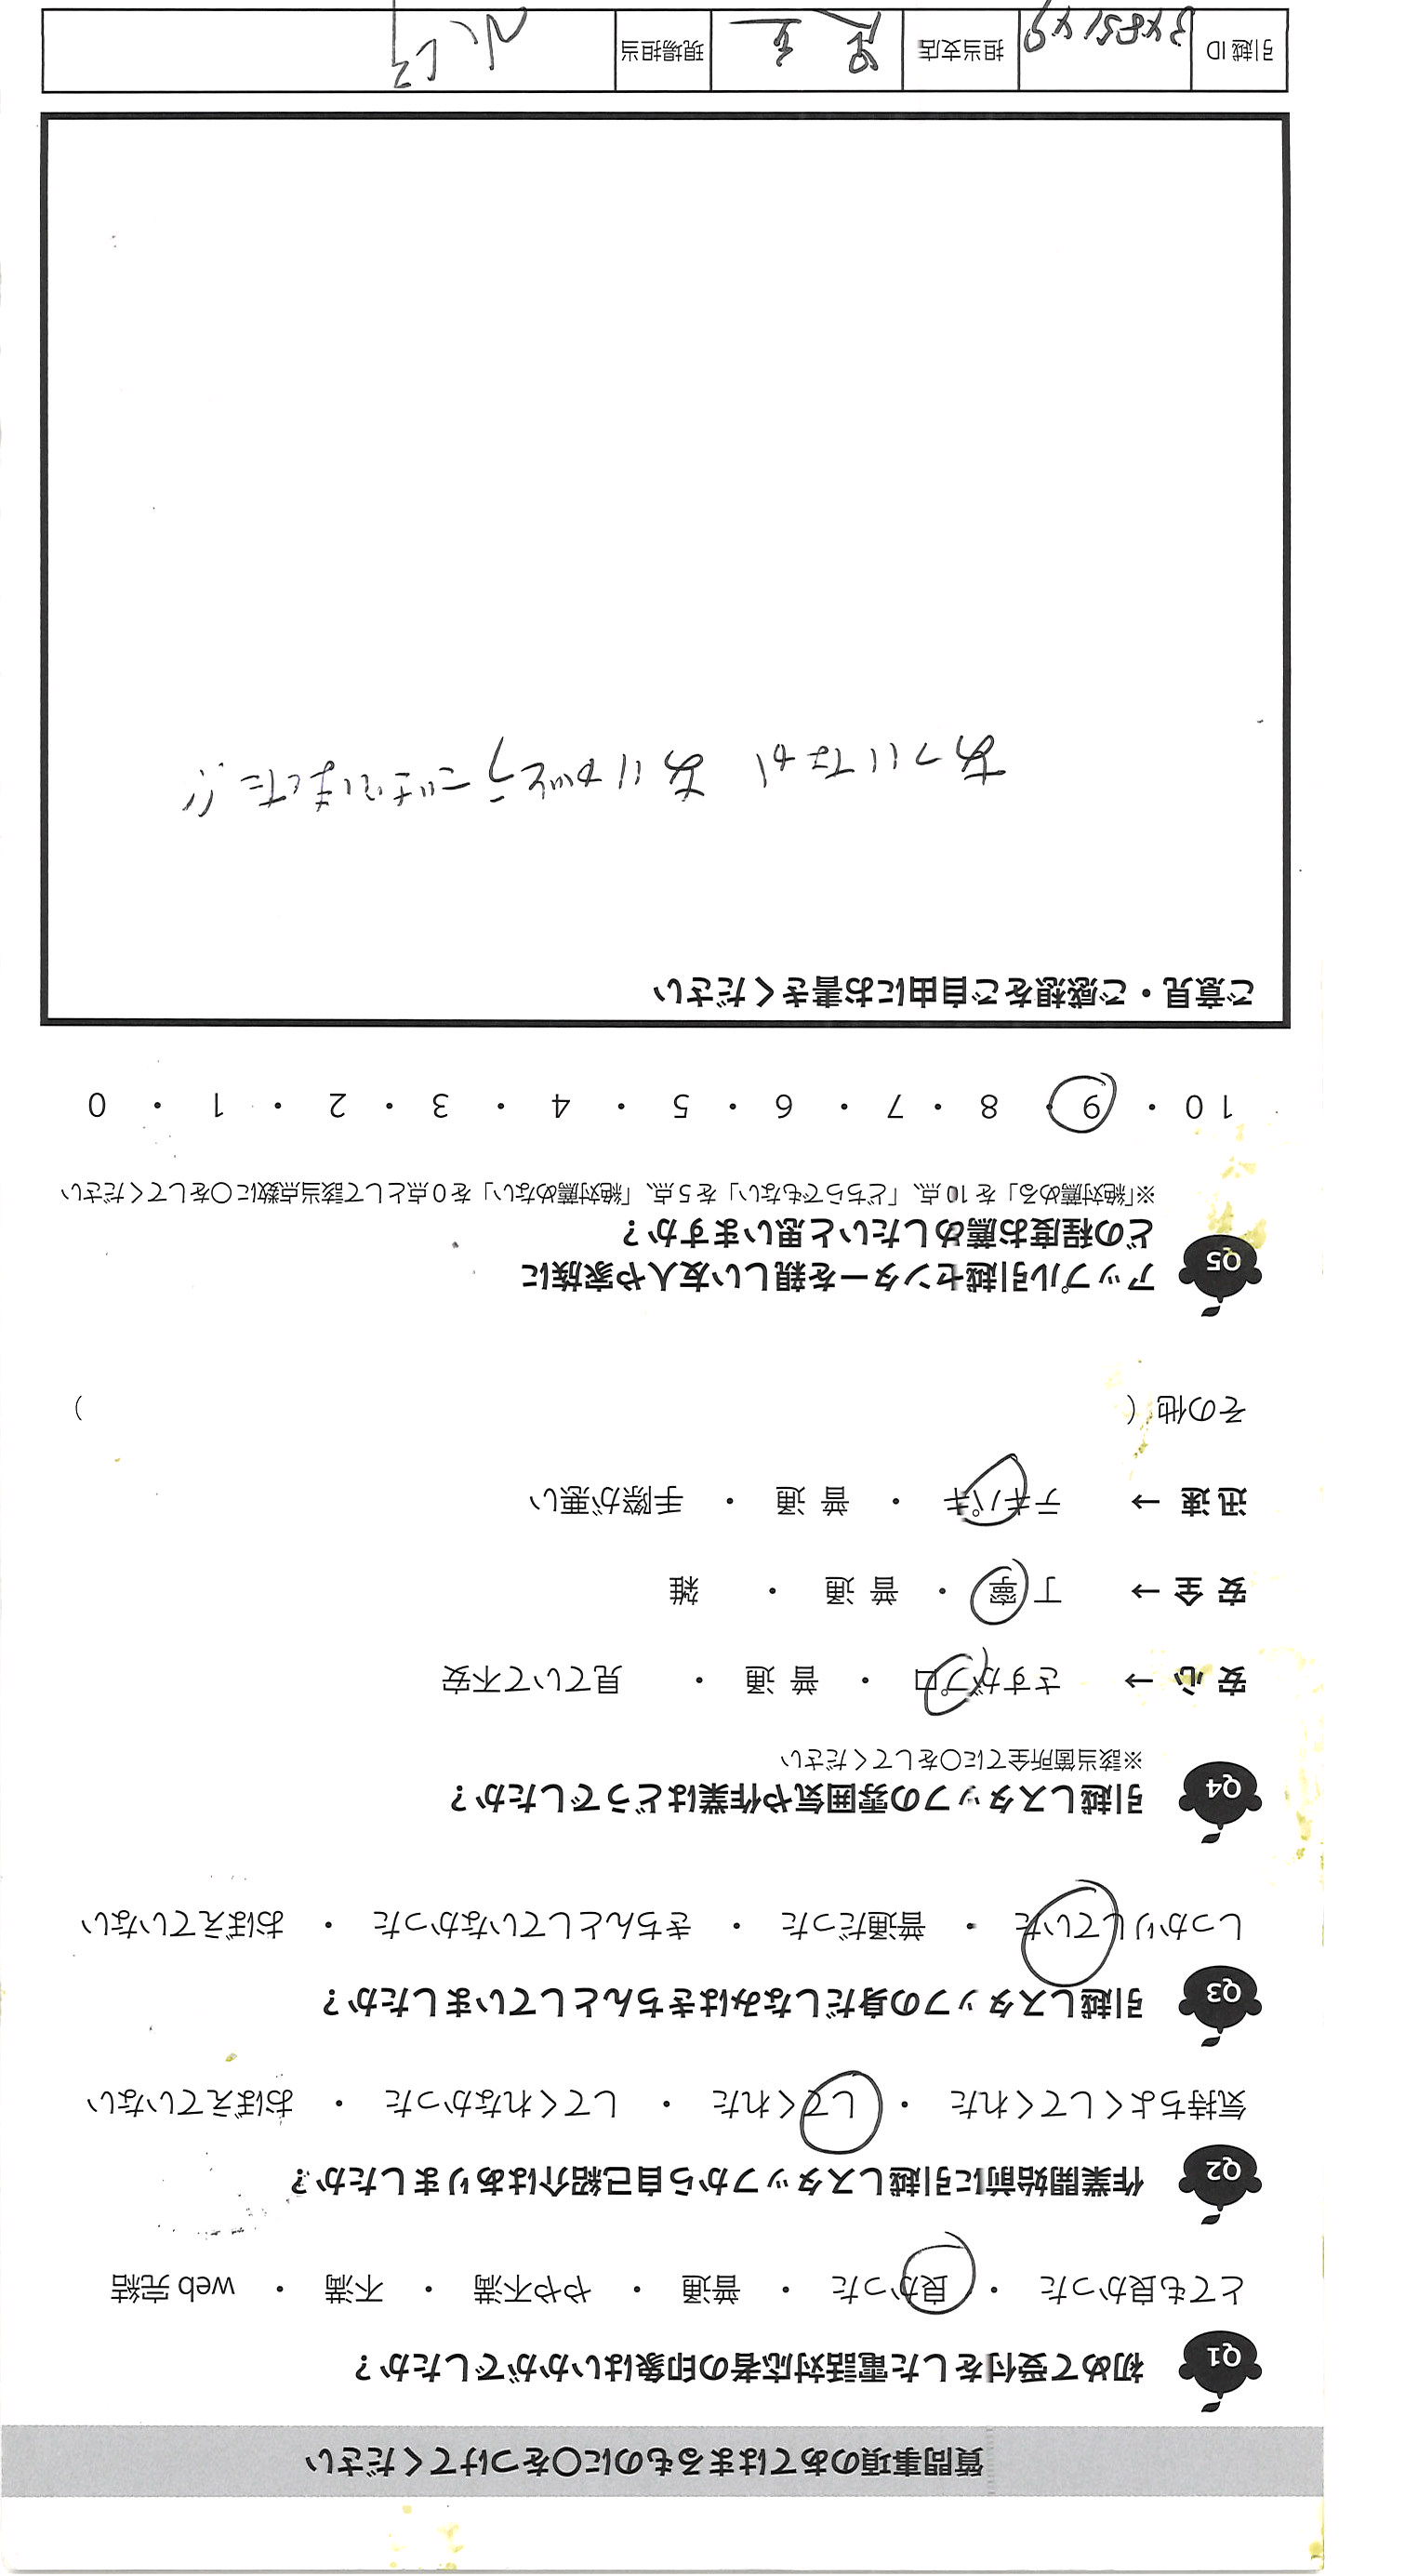 質問事項のあてはまるものに○をつけてください
Q1 初めて受付をした電話対応者の印象はいかがでしたか？
とても良かった ・ 良かった ・ 普通 ・ やや不満 ・ 不満 ・ web 完結
Q2 作業開始前に引越しスタッフから自己紹介はありましたか？
気持ちよくしてくれた ・ してくれた ・ してくれなかった ・ おぼえていない
Q3 引越しスタッフの身だしなみはきちんとしていましたか？
しっかりしていた ・ 普通だった ・ きちんとしていなかった ・ おぼえていない
Q4 引越しスタッフの雰囲気や作業はどうでしたか？
※該当箇所全てに○をしてください
安 心 → さすがプロ ・ 普 通 ・ 見ていて不安
安 全 → 丁 寧 ・ 普 通 ・ 雑
迅 速 → テキパキ ・ 普 通 ・ 手際が悪い
その他（ ）
Q5 アップル引越センターを親しい友人や家族に
どの程度お薦めしたいと思いますか？
※「絶対薦める」を 10 点、「どちらでもない」を 5 点、「絶対薦めない」を 0 点として該当点数に○をしてください
10 ・ 9 ・ 8 ・ 7 ・ 6 ・ 5 ・ 4 ・ 3 ・ 2 ・ 1 ・ 0
ご意見・ご感想をご自由にお書きください
あつい なか ありがとうございました!!
引越 ID 担当支店 現場担当